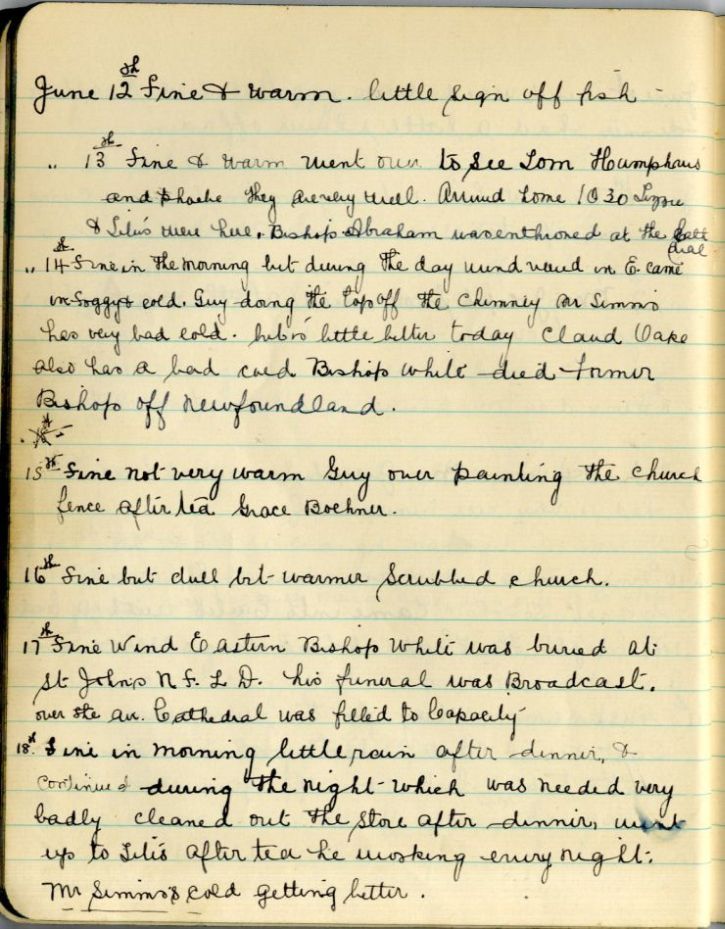 June 12th Fine & warm. little sign off fish
" 13th Fine & warm went over to see Tom Humphries
and Phoebe they are very well. Arrived home 1030 Lizzie
& Silas were here. Bishop Abraham was enthroned at the Cathedral
" 14th Fine in the morning but during the day wind veered in E. came
in foggy & cold. Guy doing the top off the chimney Mr Simms
has very bad cold. but is little better today Claud Oake
also has a bad cold Bishop White died former
Bishop off Newfoundland.
15th Fine not very warm Guy over painting the church
fence after tea Grace Boehner.
16th Fine but dull bit warmer Scrubbed church.
17th Fine Wind Eastern Bishop White was buried at
St John's N F. L D. his funeral was Broadcast.
over the air. Cathedral was filled to Capacity
18th Fine in morning little rain after dinner, &
continued during the night which was needed very
badly cleaned out the store after dinner, went
up to Silis after tea he working every night.
Mr Simms's cold getting better.